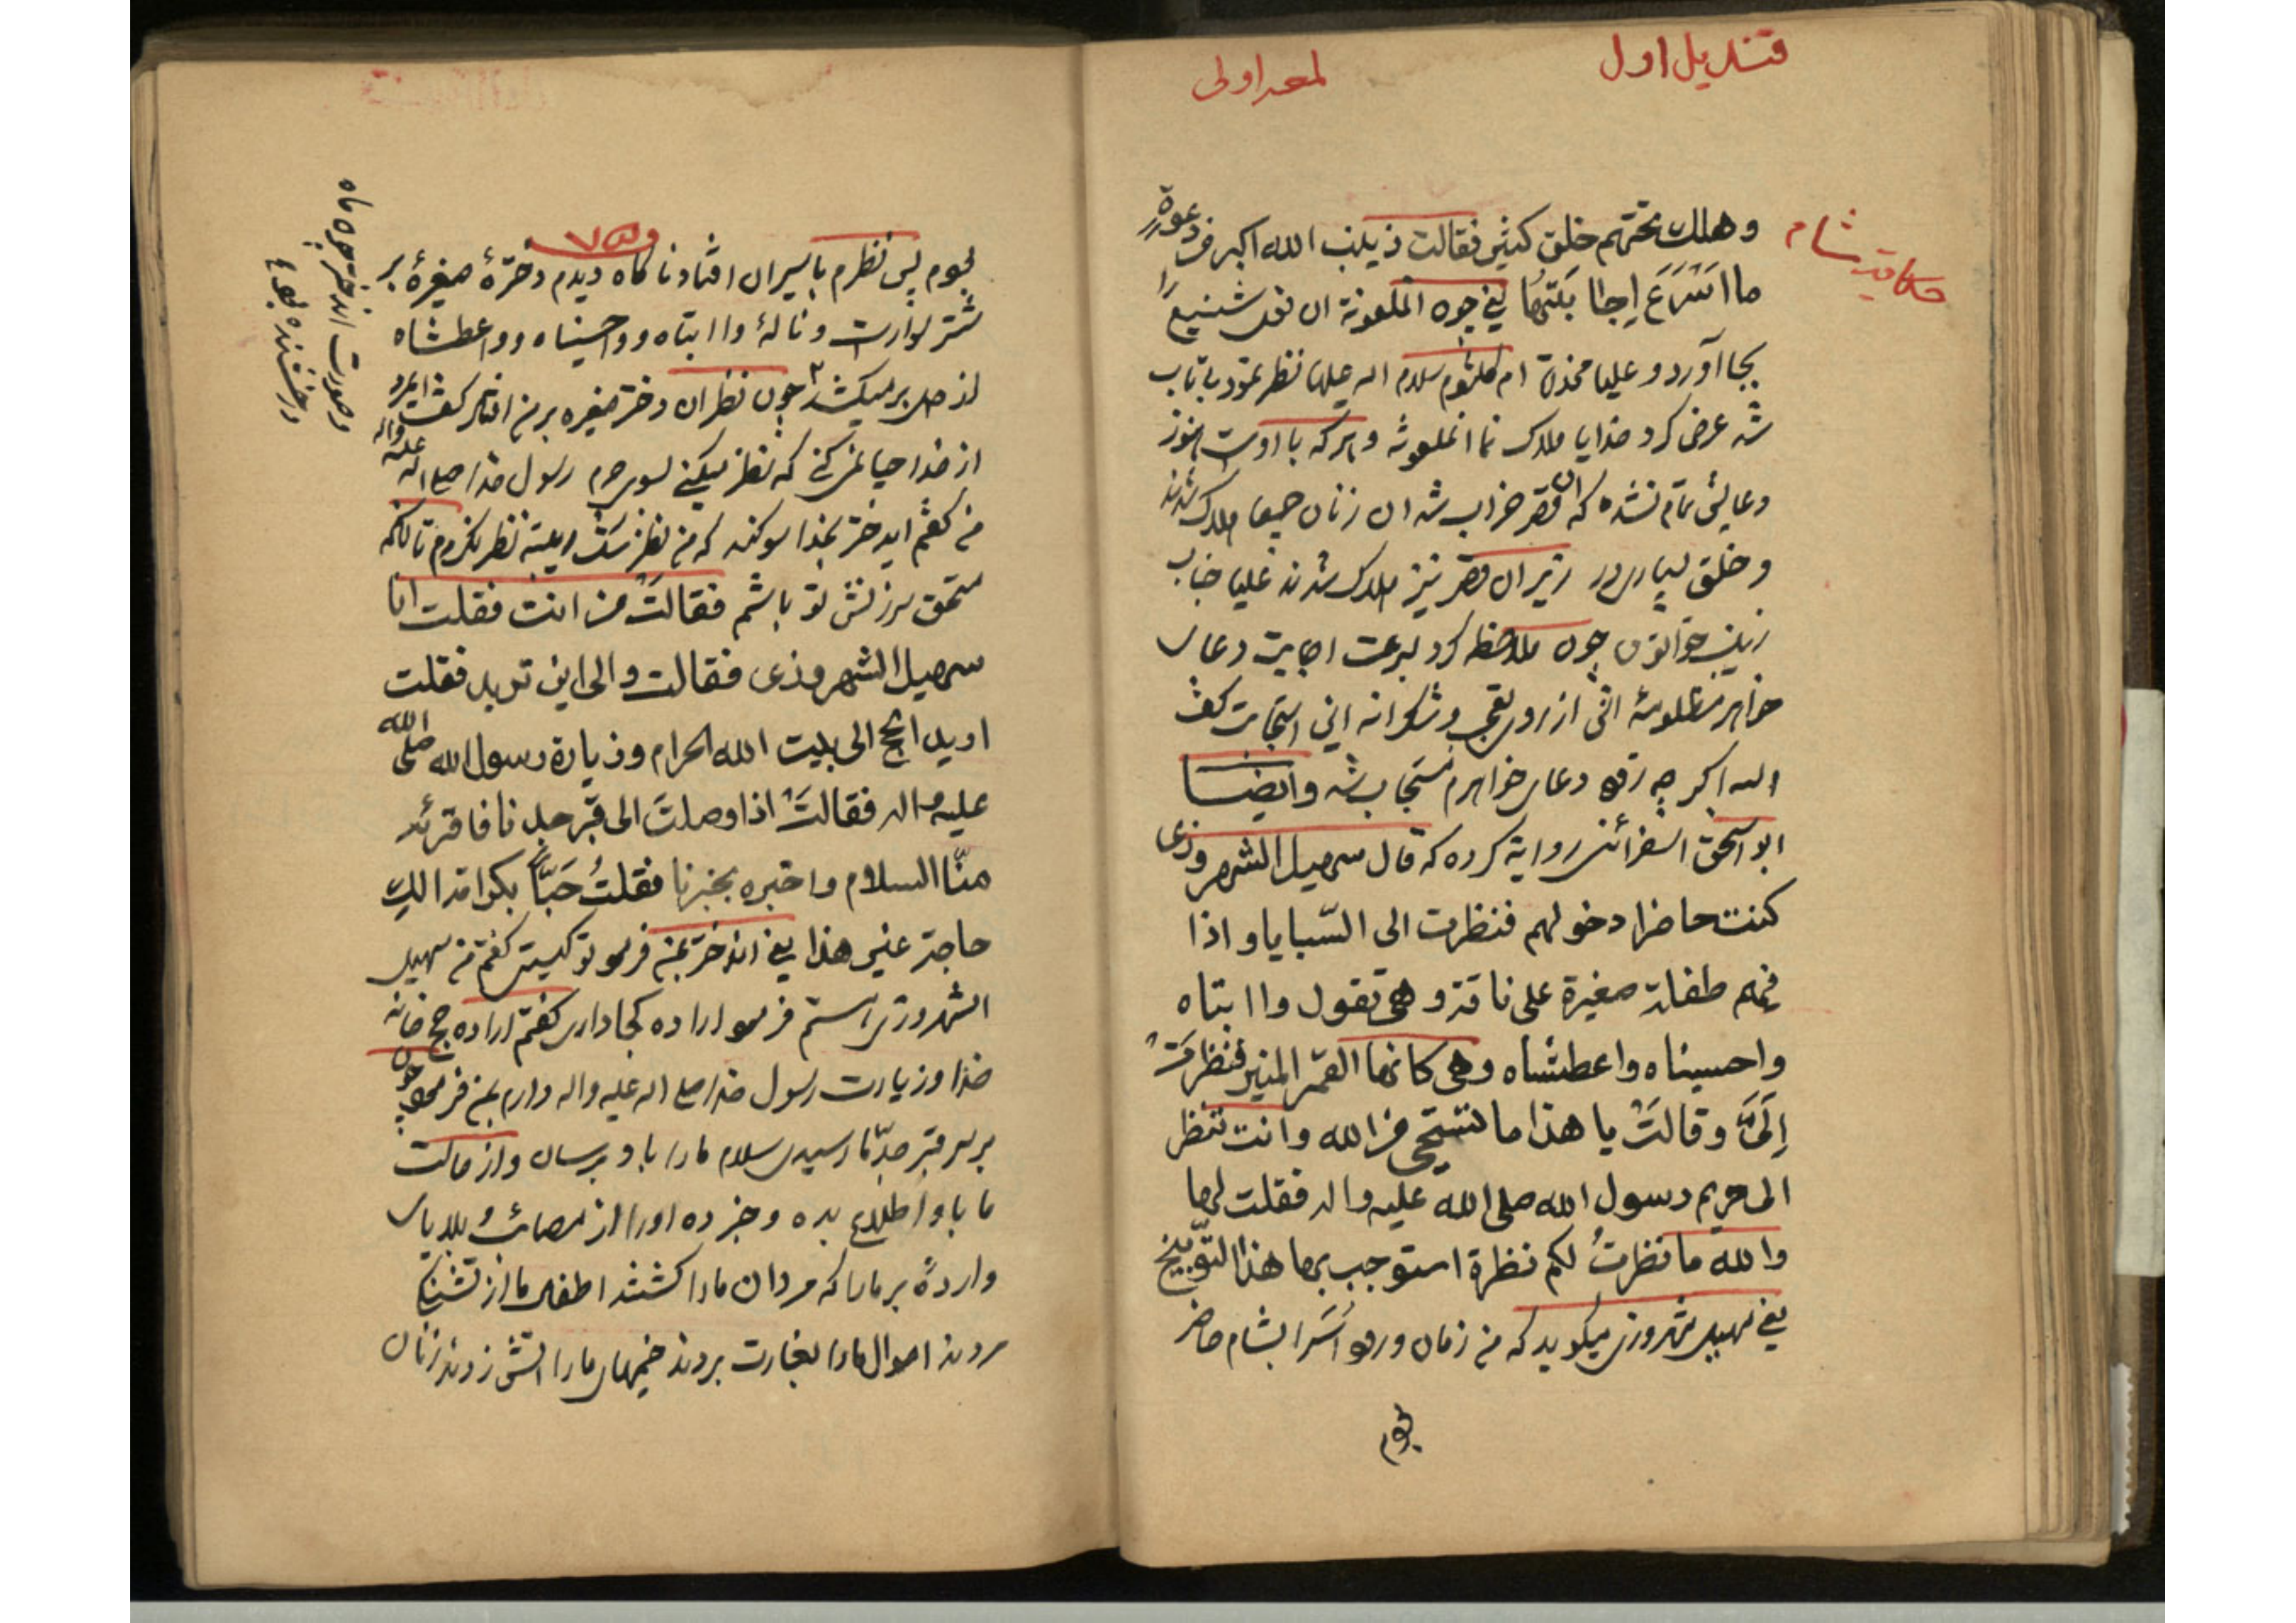 قندیل اول
لمعه اولی
حکایت شام
وهلك تحتهم خلق كثير فقالت زینب الله اكبر من دعوة
ما اسرع اجابتها یعنی چون الملعونة ان فعل شنیع را
بجا آورد و علیا مخدرة ام کلثوم سلام اله علیها نظر نمود بی تاب
شد عرض کرد خدایا هلاک نما انملعونه و هر که با اوست هنوز
دعایش تمام نشده که ان قصر خراب شد ان زنان جمیعا هلاک شدند
و خلق بسیاری در زیر ان قصر نیز هلاک شدند علیا جناب
زینب خواتون چون ملاحظه کرد بسرعت اجابت دعای
خواهر مظلومه اش از روی تعجب و شکرانه این استجابت گفت
اله اکبر چه زود دعای خواهرم مستجاب شد وایضا
ابو اسحق اسفرائنی روایة کرده که قال سهيل الشهروزی
كنت حاضرا دخولهم فنظرت الى السّبايا و اذا
فيهم طفلة صغيرة على ناقة و هي تقول وا ابتاه
واحسيناه واعطشاه وهي كانها القمر المنير فنظرت
اِلَىَّ وقالَتْ يا هذا ما تستحى من الله وانت تنظر
الى حريم رسول الله صلى الله عليه واله فقلت لها
والله ما نظرتُ لكم نظرة استوجب بها هذا التوبيخ
یعنی سهیل شهروزی میگوید که من زمان ورود اُسَرا بشام حاضر
بودم
بودم پس نظرم باسیران افتاد ناگاه دیدم دخترهٔ صغیرهٔ بر
شتر سوارست و نالهٔ وا ابتاه و واحسیناه و واعطشاه
از دل بر میکشد چون نظر ان دختر صغیره بر من افتاد گفت ایمرد
از خدا حیا نمی کنی که نظر میکنی بسوی حرم رسول خدا صلی اله علیه واله
من گفتم ایدختر بخدا سوگند که من نظر نکردم تا آنکه
مستحق سرزنش تو باشم فقالَتْ من انت فقلت انا
سهيل الشهروزى فقالت والى اين تريد فقلت
اريد الحج الى بيت الله الحرام وزيارة رسول الله صلى الله
عليه واله فقالَتْ اذا وصلتَ الى قبر جدنا فاقرئه
منّا السلام واخبره بخبرنا فقلتُ حَبّاً بكرامة الك
حاجة غير هذا یعنی اندختر بمن فرمود تو کیستی گفتم من سهیل
الشهروزی هستم فرمود اراده کجا داری گفتم اراده حج خانه
خدا و زیارت رسول خدا صلی اله علیه واله دارم بمن فرمود چون
بر سر قبر جدّ ما رسیدی سلام ما را باو برسان و از حالت
ما باو اطلاع بده و خبر ده او را از مصائب و بلاهای
واردهٔ بر ماها که مردان ما را کشتند اطفال ما از تشنگی
مردند اموال ما را بغارت بردند خیمهای ما را اتش زدند زنان
و صورت اندختر چون ماه
درخشنده بود